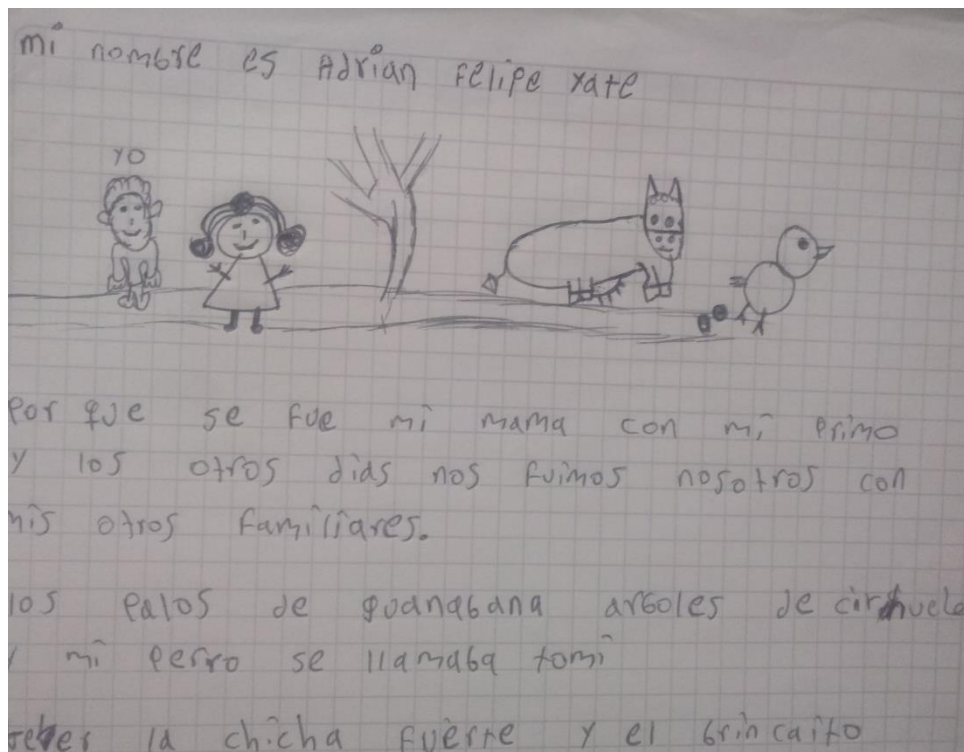 mi nombre es Adrian Felipe Yate
YO
Por que se fue mi mama con mi primo
y los otros dias nos fuimos nosotros con
mis otros familiares.
los palos de guanabana arboles de cirhuela
y mi perro se llamaba tomi
la chicha fuerte y el brincaito